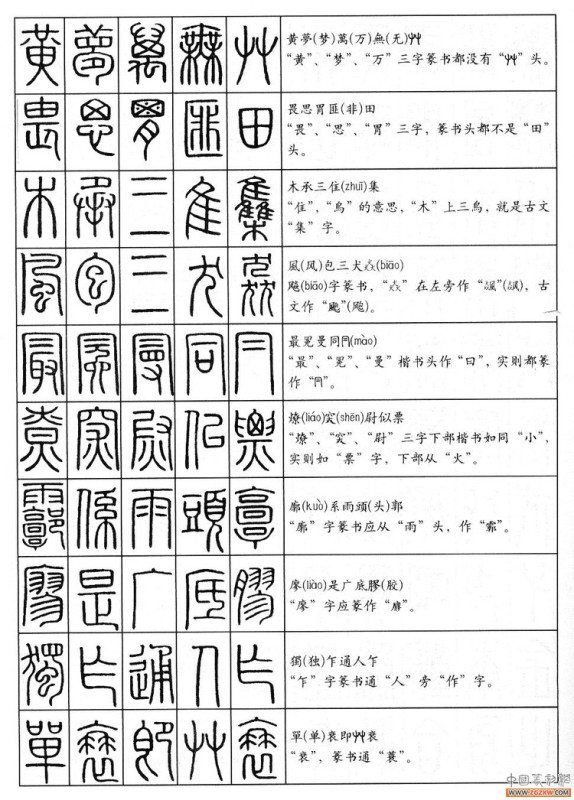 黄夢(梦)萬(万)無(无)艸
“黄”、“梦”、“万”三字篆书都没有“艸”头。
畏思胃匪(非)田
“畏”、“思”、“胃”三字，篆书头都不是“田”
头。
木承三隹(zhuī)集
“隹”，“鳥”的意思，“木”上三鳥，就是古文
“集”字。
風(风)包三犬猋(biāo)
飚(biāo)字篆书，“猋”在左旁作“飆”(飙)，古
文作“飈”(飚)。
最冕曼同冃(mào)
“最”、“冕”、“曼”楷书头作“曰”，实则都篆
作“冃”。
燎(liáo)突(shēn)尉似票
“燎”、“突”、“尉”三字下部楷书如同“小”，
实则如“票”字，下部从“火”。
廓(kuò)系雨頭(头)郭
“廓”字篆书应从“雨”头，作“霩”。
廖(liào)是广底膠(胶)
“廖”字应篆作“廫”。
獨(独)乍通人乍
“乍”字篆书通“人”旁“作”字。
單(单)衰即艸衰
“衰”，篆书通“蓑”。
中国篆刻網
www.ZGZKW.com